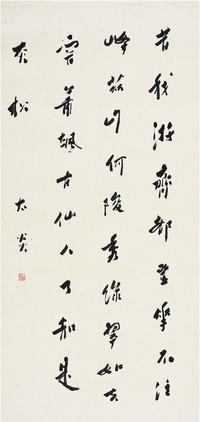 昔我游齊都登華不注
峰茲山何陖秀綠翠如夫
容蕭颯古仙人了知是
赤松 太炎